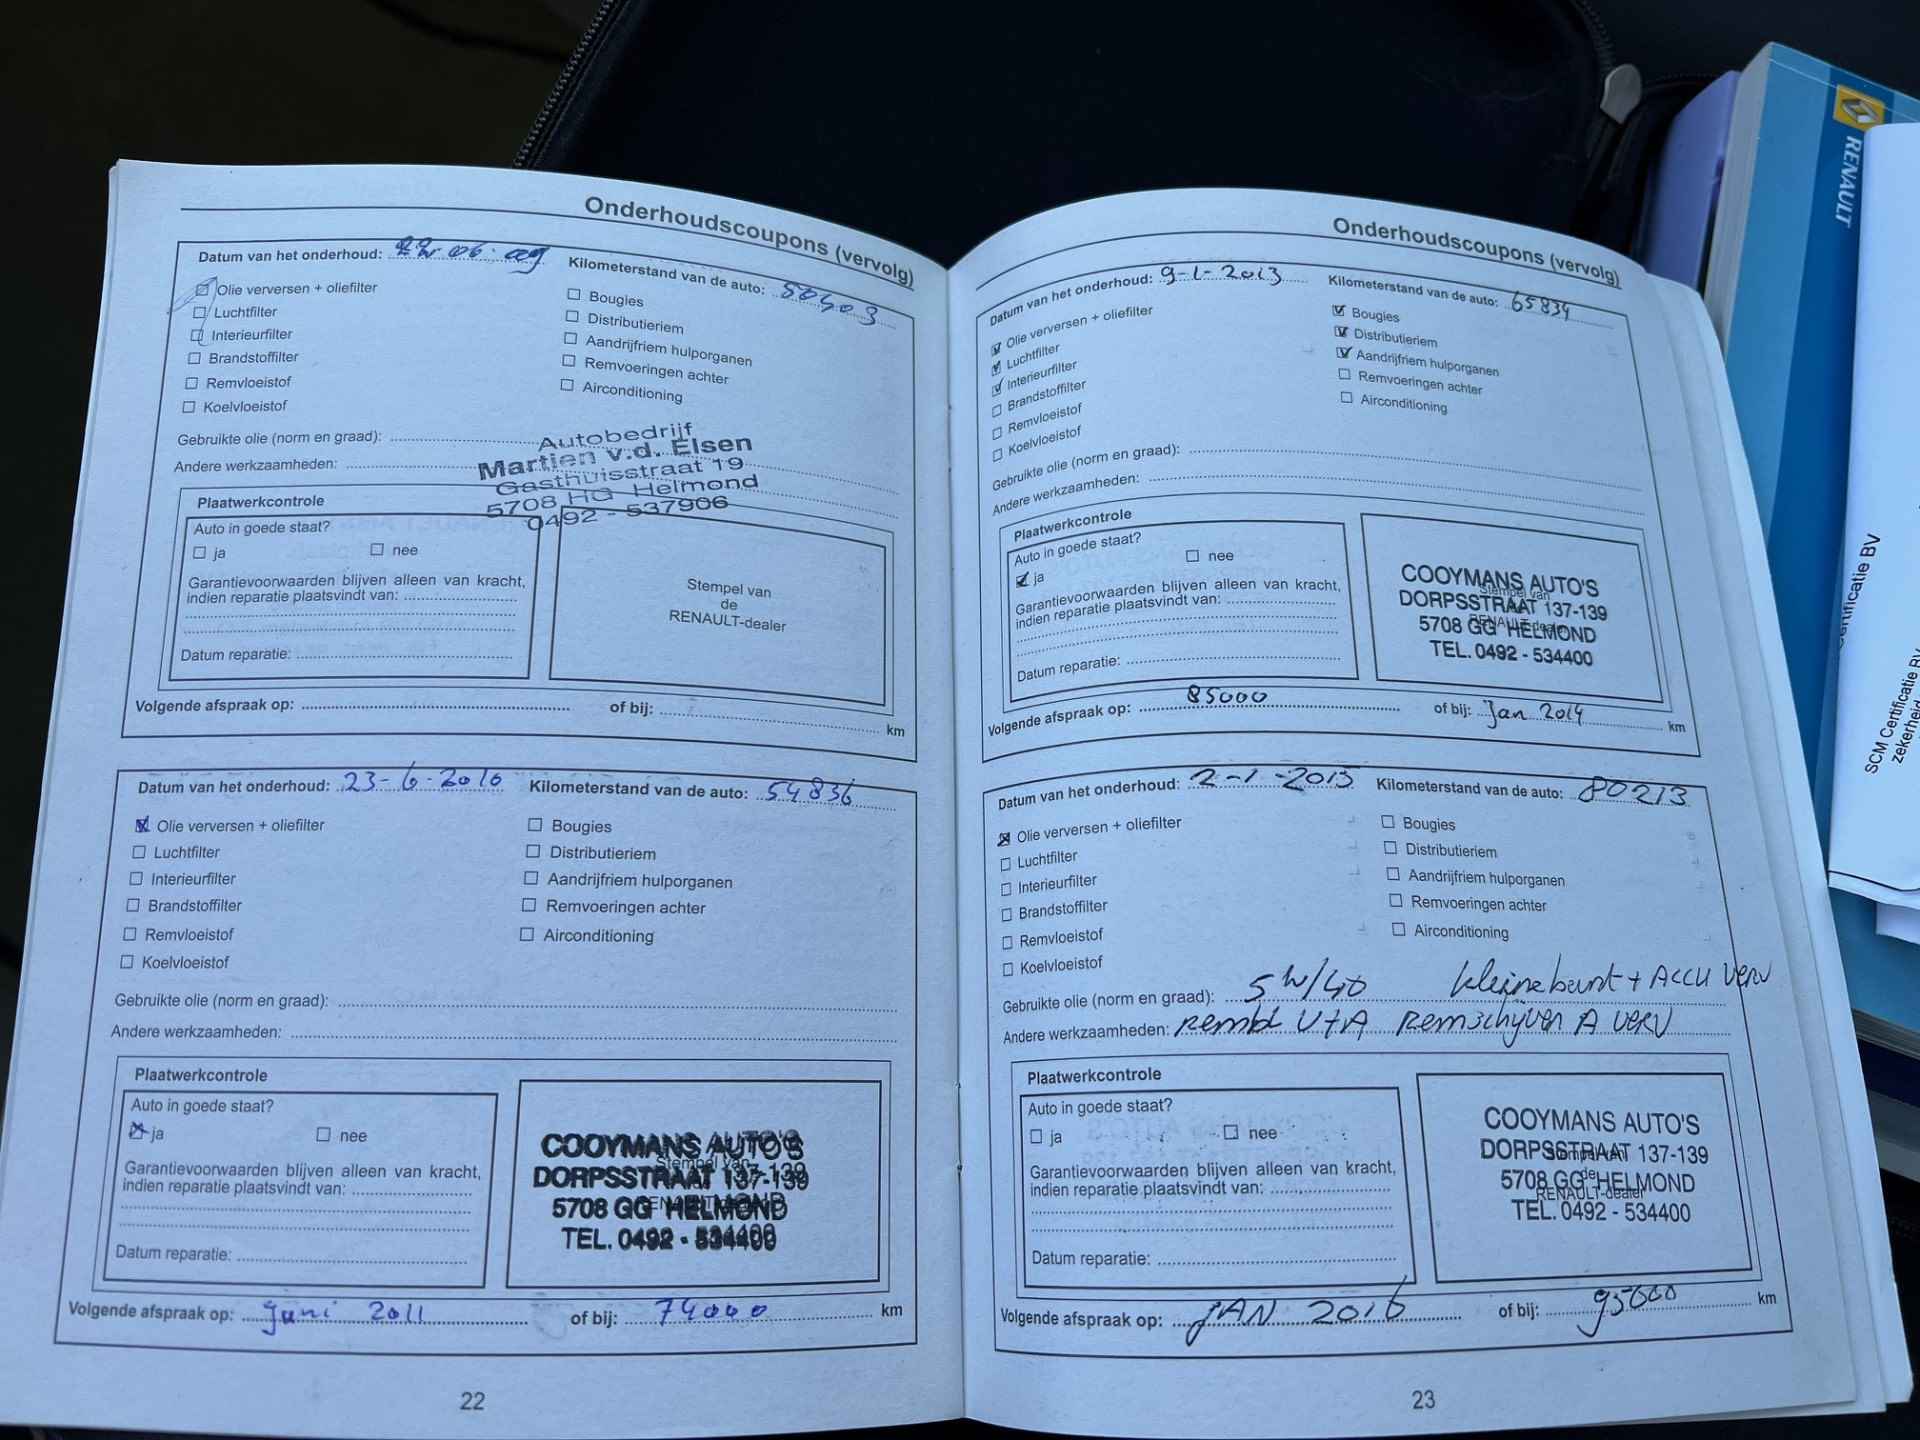 Onderhoudscoupons (vervolg)
Datum van het onderhoud: 22-06-09 Kilometerstand van de auto: 50403
Olie verversen + oliefilter
Luchtfilter
Interieurfilter
Brandstoffilter
Remvloeistof
Koelvloeistof
Bougies
Distributieriem
Aandrijfriem hulporganen
Remvoeringen achter
Airconditioning
Gebruikte olie (norm en graad):
Andere werkzaamheden:
Autobedrijf
Martien v.d. Elsen
Gasthuisstraat 19
5708 HG Helmond
0492 - 537906
Plaatwerkcontrole
Auto in goede staat?
ja nee
Garantievoorwaarden blijven alleen van kracht,
indien reparatie plaatsvindt van:
Datum reparatie:
Stempel van
de
RENAULT-dealer
Volgende afspraak op: of bij: km
Datum van het onderhoud: 23-6-2010 Kilometerstand van de auto: 54836
Olie verversen + oliefilter
Luchtfilter
Interieurfilter
Brandstoffilter
Remvloeistof
Koelvloeistof
Bougies
Distributieriem
Aandrijfriem hulporganen
Remvoeringen achter
Airconditioning
Gebruikte olie (norm en graad):
Andere werkzaamheden:
Plaatwerkcontrole
Auto in goede staat?
ja nee
Garantievoorwaarden blijven alleen van kracht,
indien reparatie plaatsvindt van:
Datum reparatie:
COOYMANS AUTO'S
DORPSSTRAAT 137-139
5708 GG HELMOND
TEL. 0492 - 534400
Volgende afspraak op: juni 2011 of bij: 74000 km
22
Onderhoudscoupons (vervolg)
Datum van het onderhoud: 9-1-2013 Kilometerstand van de auto: 65834
Olie verversen + oliefilter
Luchtfilter
Interieurfilter
Brandstoffilter
Remvloeistof
Koelvloeistof
Bougies
Distributieriem
Aandrijfriem hulporganen
Remvoeringen achter
Airconditioning
Gebruikte olie (norm en graad):
Andere werkzaamheden:
Plaatwerkcontrole
Auto in goede staat?
ja nee
Garantievoorwaarden blijven alleen van kracht,
indien reparatie plaatsvindt van:
Datum reparatie:
Stempel van
RENAULT-dealer
COOYMANS AUTO'S
DORPSSTRAAT 137-139
5708 GG HELMOND
TEL. 0492 - 534400
Volgende afspraak op: 85000 of bij: Jan 2014 km
Datum van het onderhoud: 2-1-2015 Kilometerstand van de auto: 80213
Olie verversen + oliefilter
Luchtfilter
Interieurfilter
Brandstoffilter
Remvloeistof
Koelvloeistof
Bougies
Distributieriem
Aandrijfriem hulporganen
Remvoeringen achter
Airconditioning
Gebruikte olie (norm en graad): 5W/40 kleine beurt + ACCU verv
Andere werkzaamheden: Rembl V+A Remschijven A verv
Plaatwerkcontrole
Auto in goede staat?
ja nee
Garantievoorwaarden blijven alleen van kracht,
indien reparatie plaatsvindt van:
Datum reparatie:
Stempel van
de
RENAULT-dealer
COOYMANS AUTO'S
DORPSSTRAAT 137-139
5708 GG HELMOND
TEL. 0492 - 534400
Volgende afspraak op: JAN 2016 of bij: 95000 km
23
RENAULT
Certificatie BV
SCM Certificatie BV
zekerheid